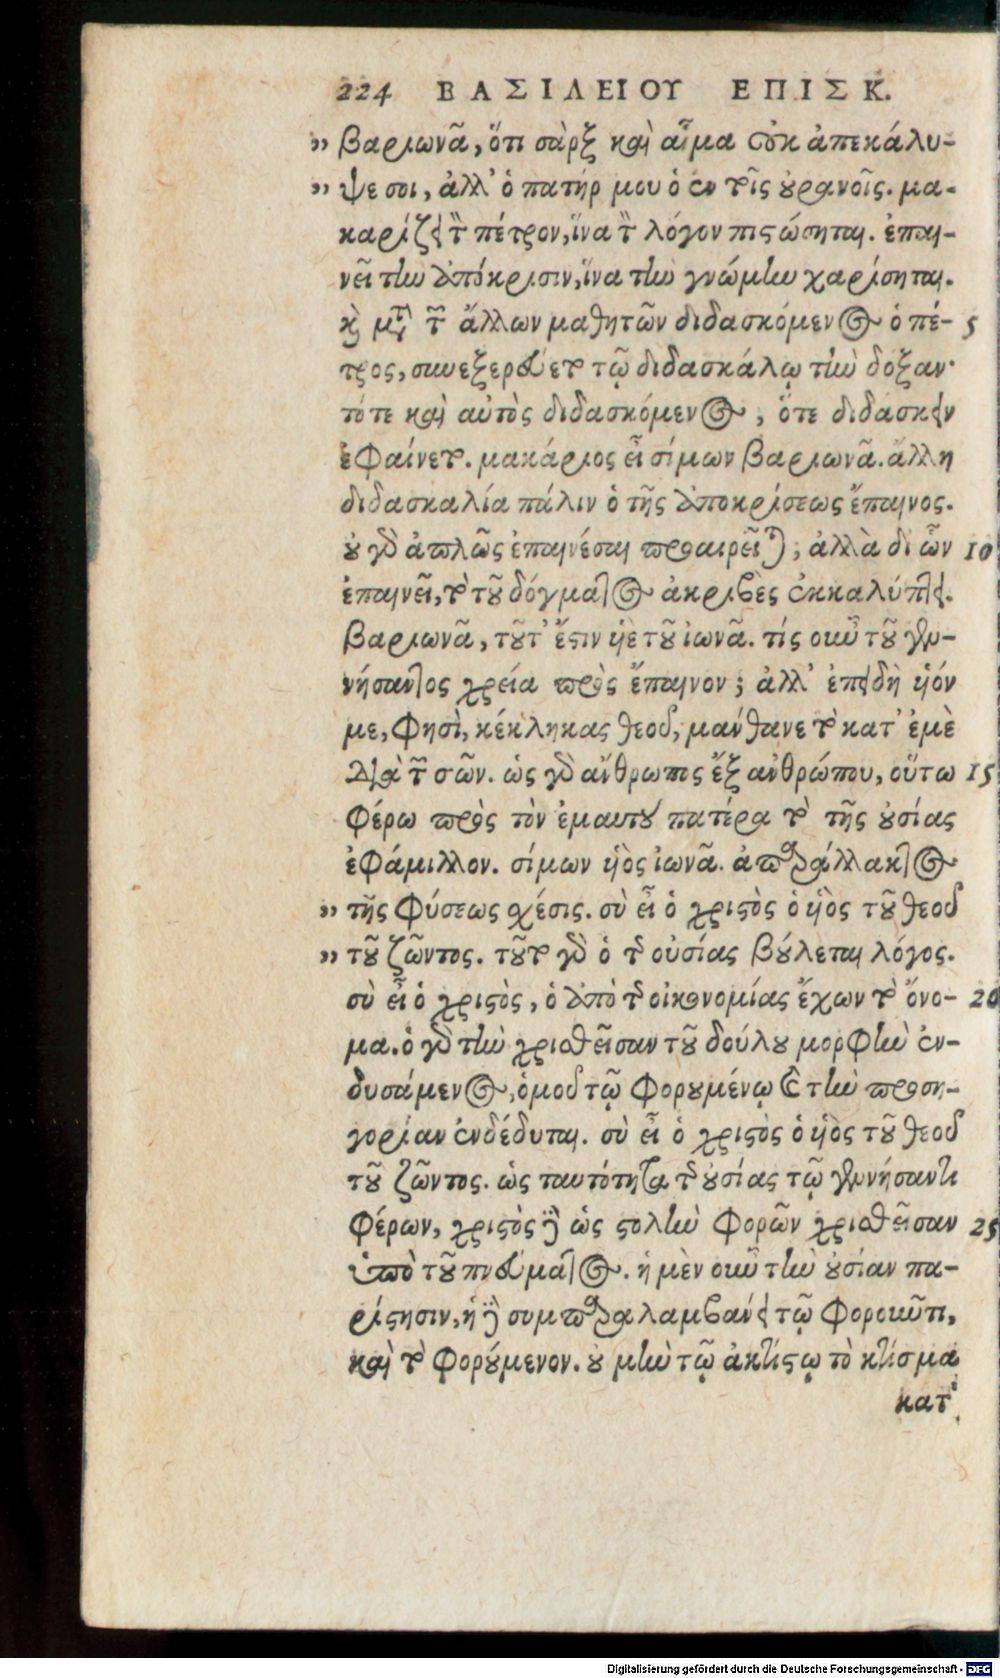 224 ΒΑΣΙΛΕΙΟΥ ΕΠΙΣΚ.
„ βαριωνᾶ, ὅτι σὰρξ καὶ αἷμα οὐκ ἀπεκάλυ-
„ ψε σοι, ἀλλ' ὁ πατήρ μου ὁ ἐν τοῖς οὐρανοῖς. μα-
καρίζει τὸν πέτρον, ἵνα τὸν λόγον πιστώσηται. ἐπαι-
νεῖ τὴν ἀπόκρισιν, ἵνα τὴν γνώμην χαρίσηται.
καὶ μετὰ τῶν ἄλλων μαθητῶν διδασκόμενος ὁ πέ- 5
τρος, συνεξερεύετο τῷ διδασκάλῳ τὴν δόξαν·
τότε καὶ αὐτὸς διδασκόμενος, ὅτε διδάσκειν
ἐφαίνετο. μακάριος εἶ σίμων βαριωνᾶ. ἄλλη
διδασκαλία πάλιν ὁ τῆς ἀποκρίσεως ἔπαινος.
οὐ γὰρ ἁπλῶς ἐπαινέσαι προαιρεῖται, ἀλλὰ δι ὧν 10
ἐπαινεῖ, τὸ τοῦ δόγματος ἀκριβὲς ἐκκαλύπτει.
βαριωνᾶ, τοῦτ' ἔστιν υἱὲ τοῦ ἰωνᾶ. τίς οὖν τοῦ γεν-
νήσαντος χρεία πρὸς ἔπαινον; ἀλλ' ἐπειδὴ υἱόν
με, φησὶ, κέκληκας θεοῦ, μάνθανε τὸ κατ' ἐμὲ
διὰ τῶν σῶν. ὡς γὰρ ἄνθρωπος ἐξ ἀνθρώπου, οὕτω 15
φέρω πρὸς τὸν ἐμαυτοῦ πατέρα τὸ τῆς οὐσίας
ἐφάμιλλον. σίμων υἱὸς ἰωνᾶ. ἀπαράλλακτος
„ τῆς φύσεως σχέσις. σὺ εἶ ὁ χριστὸς ὁ υἱὸς τοῦ θεοῦ
„ τοῦ ζῶντος. τοῦτο γὰρ ὁ τῆς οὐσίας βούλεται λόγος.
σὺ εἶ ὁ χριστὸς, ὁ ἀπὸ τῆς οἰκονομίας ἔχων τὸ ὄνο- 20
μα. ὁ γὰρ τὴν χρισθεῖσαν τοῦ δούλου μορφὴν ἐν-
δυσάμενος, ὁμοῦ τῷ φορουμένῳ καὶ τὴν προση-
γορίαν ἐνδέδυται. σὺ εἶ ὁ χριστὸς ὁ υἱὸς τοῦ θεοῦ
τοῦ ζῶντος. ὡς ταυτότητα τῆς οὐσίας τῷ γεννήσαντι
φέρων, χριστὸς δὲ ὡς στολὴν φορῶν χρισθεῖσαν 25
ὑπὸ τοῦ πνεύματος. ἡ μὲν οὖν τὴν οὐσίαν πα-
ρίστησιν, ἡ δὲ συμπαραλαμβάνει τῷ φοροῦντι,
καὶ τὸ φορούμενον. οὐ μὴν τῷ ἀκτίστῳ τὸ κτίσμα
κατ'
Digitalisierung gefördert durch die Deutsche Forschungsgemeinschaft - DFG